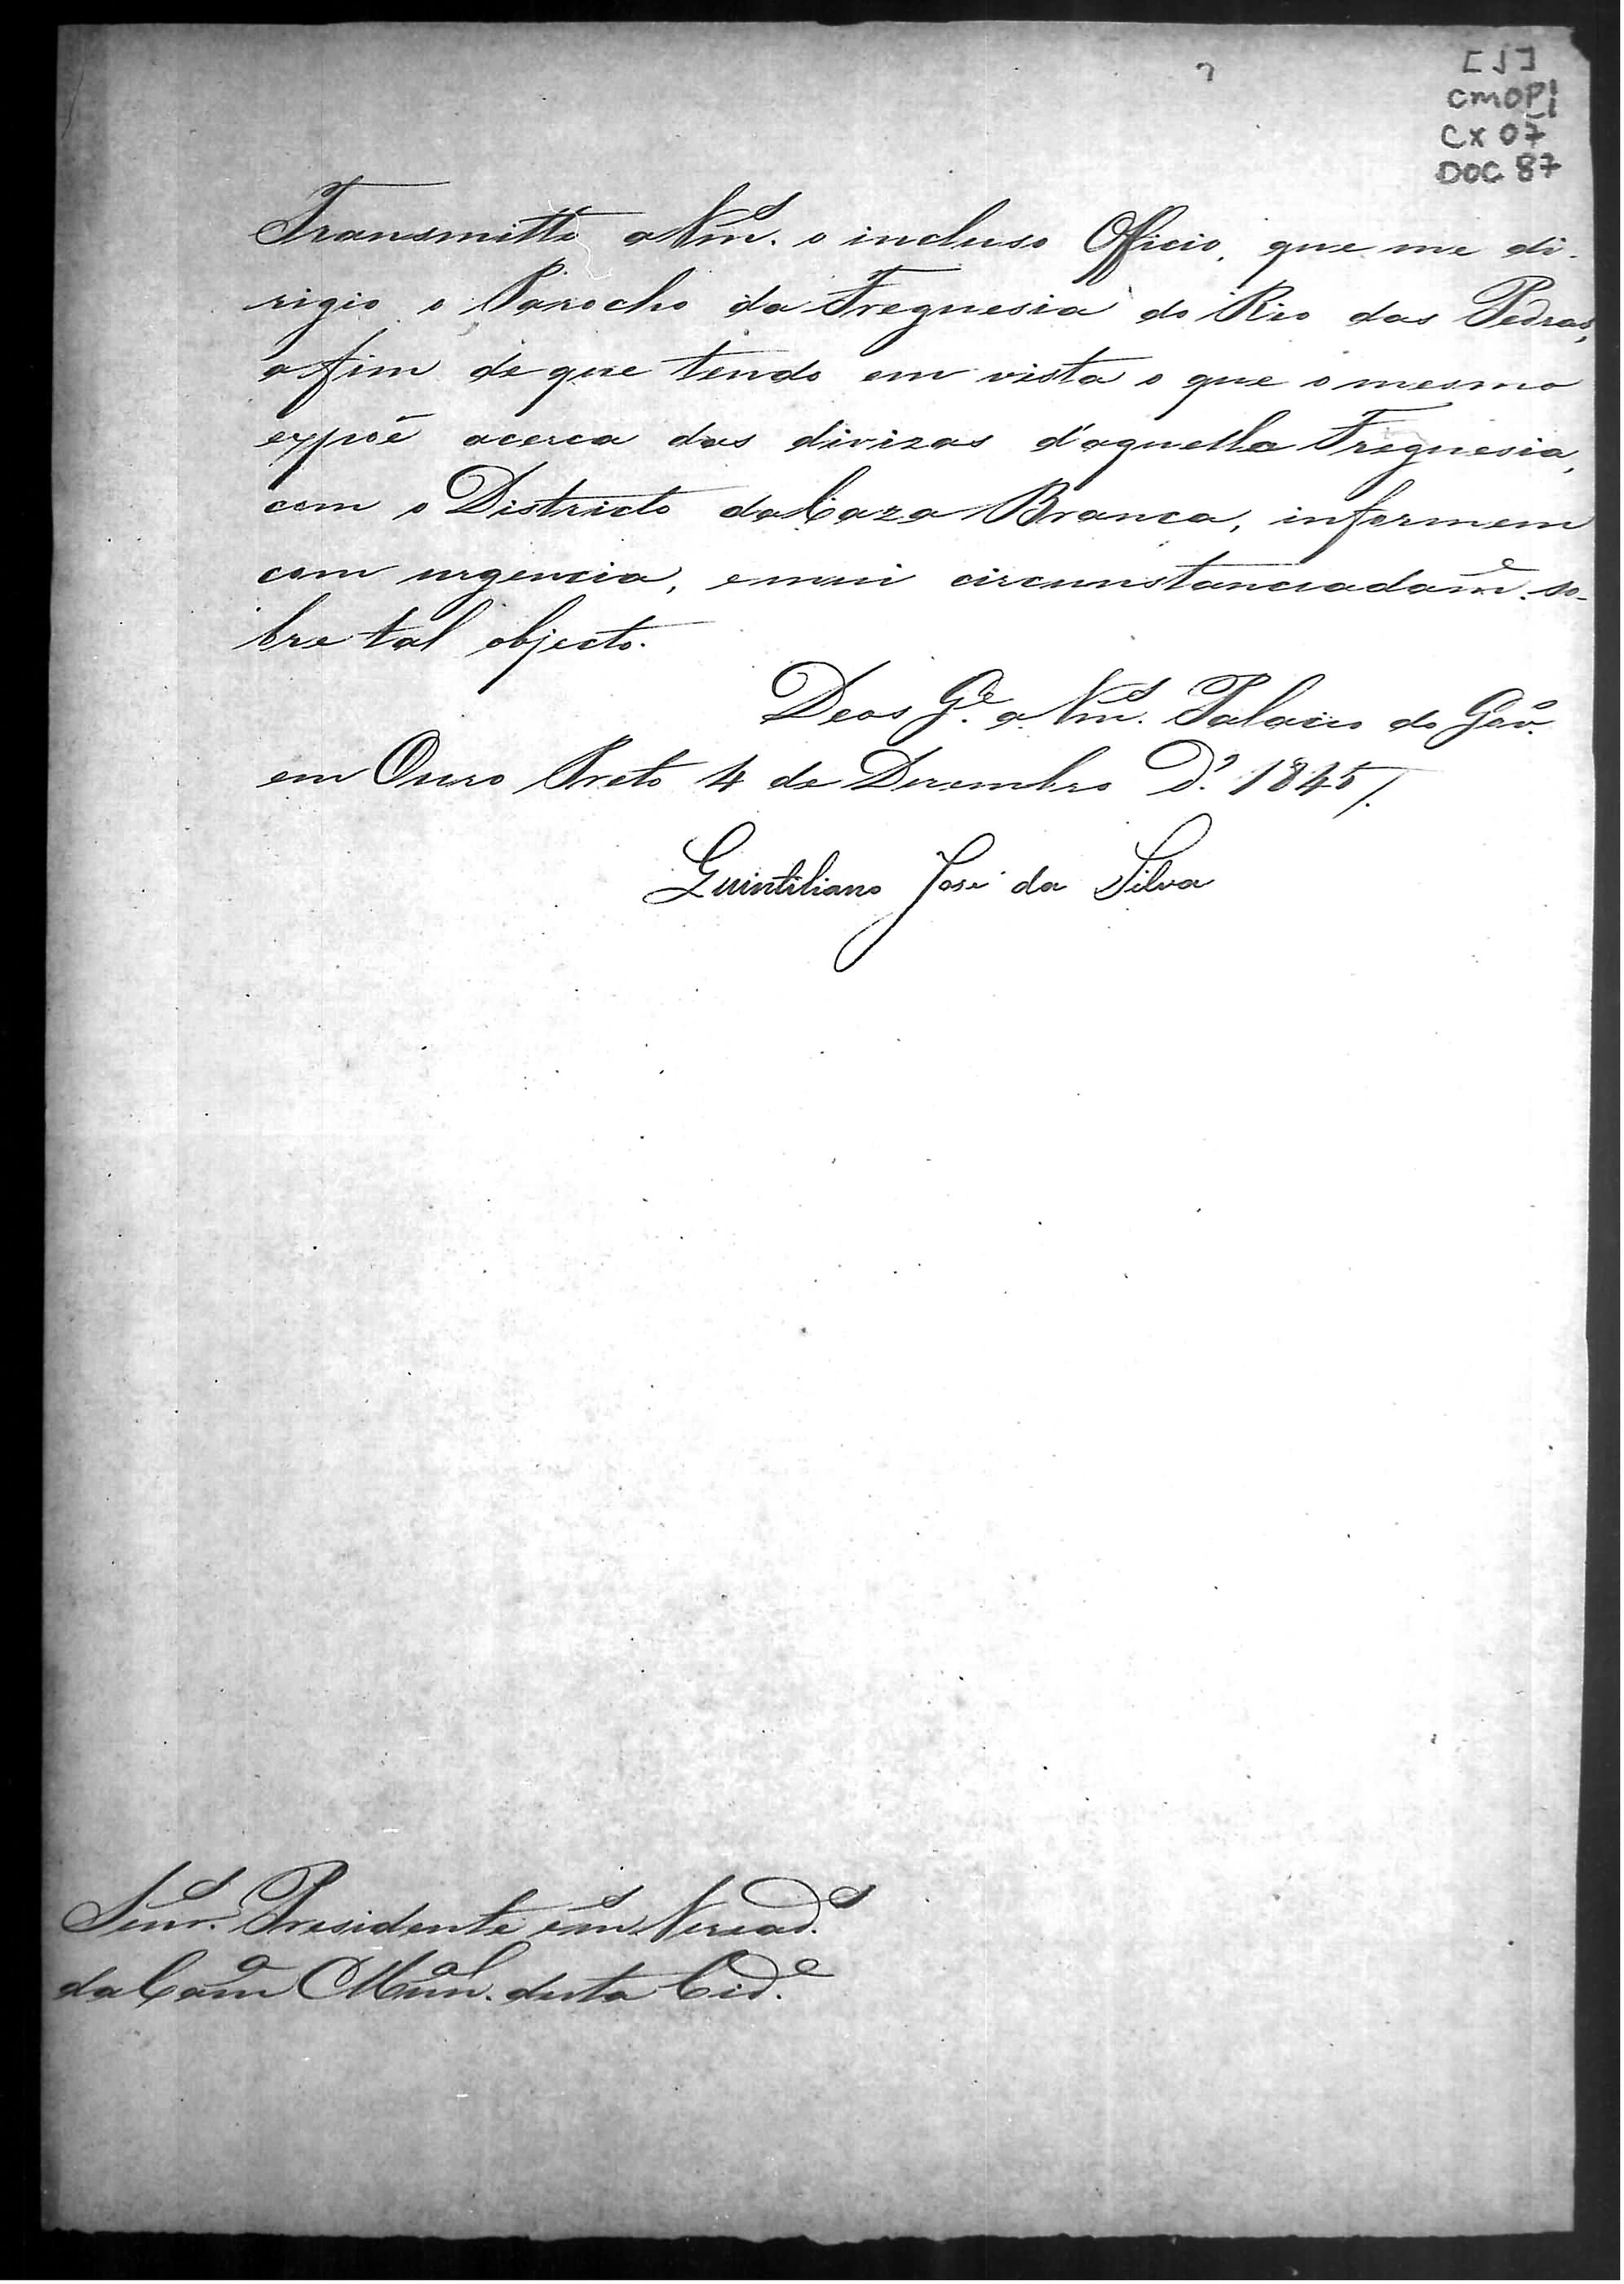 [1]
CMOP1
CX 07
DOC 87
Transmitto a Vm.ces o incluso Officio, que me di-
rigio o Parocho da Freguesia do Rio das Pedras,
afim de que tendo em vista o que o mesmo
expoẽ acerca das divizas d'aquella Freguesia,
com o Districto da Caza Branca, informem
com urgencia, e mui circunstanciadam.e so-
bre tal objecto.
Deos G.e a Vm.ces Palacio do Gov.o
em Ouro Preto 4 de Dezembro D.' 1845/.
Quintiliano José da Silva
Snr.s Presidente e m.s Veread.s
da Cam.a Mun.al desta Cid.e